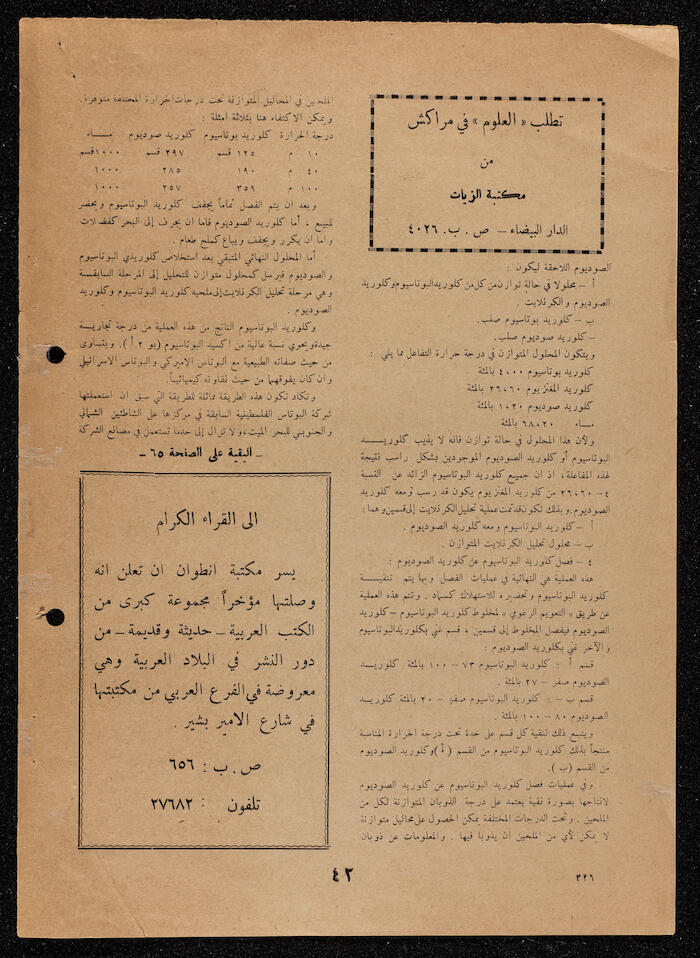 تطلب « العلوم » في مراكش
من
مكتبة الزيات
الدار البيضاء – ص . ب . ٤٠٢٦
الصوديوم اللاحقة ليكون :
أ – محلولا في حالة توازن من كل من كلوريد البوتاسيوم وكلوريد
الصوديوم والكرنلايت .
ب – كلوريد بوتاسيوم صلب .
– كلوريد صوديوم صلب .
ويتكون المحلول المتوازن في درجة حرارة التفاعل مما يلي :
كلوريد بوتاسيوم ٤،٠٠ بالمئة
كلوريد المغنزيوم ٢٦،٦٠ بالمئة
كلوريد صوديوم ١،٢٠ بالمئة
مـــاء ٦٨،٢٠ بالمئة
ولأن هذا المحلول في حالة توازن فانه لا يذيب كلوريـــد
البوتاسيوم أو كلوريد الصوديوم الموجودين بشكل راسب نتيجة
لهذه المفاعلة ، اذ ان جميع كلوريد البوتاسيوم الزائد عن النسبة
٤ – ٢٦،٦٠ من كلوريد المغنزيوم يكون قد رسب ومعه كلوريد
الصوديوم . وبذلك تكون قد تمت عملية تحليل الكرنلايت إلى قسمين وهما :
أ – كلوريد البوتاسيوم ومعه كلوريد الصوديوم .
ب – محلول تحليل الكرنلايت المتوازن .
٤ – فصل كلوريد البوتاسيوم عن كلوريد الصوديوم :
هذه العملية هي النهائية في عمليات الفصل وبها يتم تنقيـــة
كلوريد البوتاسيوم وتحضيره للاستهلاك كسماد . وتتم هذه العملية
عن طريق « التعويم الرغوي » لمخلوط كلوريد البوتاسيوم – كلوريد
الصوديوم فيفصل المخلوط إلى قسمين ، قسم غني بكلوريد البوتاسيوم
والآخر غني بكلوريد الصوديوم :
قسم أ : كلوريد البوتاسيوم ٧٣ – ١٠٠ بالمئة كلوريـــد
الصوديوم صفر – ٢٧ بالمئة .
قسم ب – : كلوريد البوتاسيوم صفر – ٢٠ بالمئة كلوريـــد
الصوديوم ٨٠ – ١٠٠ بالمئة .
ويتبع ذلك تنقية كل قسم على حدة تحت درجة الحرارة المناسبة
منتجاً بذلك كلوريد البوتاسيوم من القسم ( أ ) وكلوريد الصوديوم
من القسم ( ب ) .
وفي عمليات فصل كلوريد البوتاسيوم عن كلوريد الصوديوم
لانتاجها بصورة نقية يعتمد على درجة الذوبان المتوازنة لكل من
الملحين . وتحت الدرجات المختلفة يمكن الحصول على محاليل متوازنة
لا يمكن لأي من الملحين ان يذوبا فيها . والمعلومات عن ذوبان
الملحين في المحاليل المتوازنة تحت درجات الحرارة المختلفة متوفرة .
ويمكن الاكتفاء هنا بثلاثة أمثلة :
درجة الحرارة كلوريد بوتاسيوم كلوريد صوديوم مـــاء
١٠ م ١٢٥ قسم ٢٩٧ قسم ١٠٠٠ قسم
٤٠ م ١٩٠ ٢٨٥ ١٠٠٠
١٠٠ م ٣٥٩ ٢٥٧ ١٠٠٠
وبعد ان يتم الفصل تماماً يجفف كلوريد البوتاسيوم ويحضر
للبيع ، أما كلوريد الصوديوم فاما ان يجرف إلى البحر كفضلات
واما ان يكرر ويجفف ويباع كملح طعام .
أما المحلول النهائي المتبقي بعد استخلاص كلوريدي البوتاسيوم
والصوديوم فيرسل كمحلول متوازن للتحليل إلى المرحلة السابقــة
وهي مرحلة تحليل الكرنلايت إلى ملحيه كلوريد البوتاسيوم وكلوريد
الصوديوم .
وكلوريد البوتاسيوم الناتج من هذه العملية من درجة تجاريــة
جيدة ويحوي نسبة عالية من اكسيد البوتاسيوم ( بو ٢ أ ) . ويتساوى
من حيث صفاته الطبيعية مع البوتاس الاميركي والبوتاس الاسرائيلي
وان كان يفوقهما من حيث نقاوته كيميائياً .
وتكاد تكون هذه الطريقة مماثلة للطريقة التي سبق ان استعملتها
شركة البوتاس الفلسطينية السابقة في مركزها على الشاطئين الشمالي
والجنوبي للبحر الميت ، ولا تزال إلى حد ما تستعمل في مصانع الشركة
– البقية على الصفحة ٦٥ –
الى القراء الكرام
يسر مكتبة انطوان ان تعلن انه
وصلتها مؤخراً مجموعة كبرى من
الكتب العربية – حديثة وقديمة – من
دور النشر في البلاد العربية وهي
معروضة في الفرع العربي من مكتبتها
في شارع الامير بشير .
ص . ب : ٦٥٦
تلفون : ٢٧٦٨٢
٤٢
٣٢٦